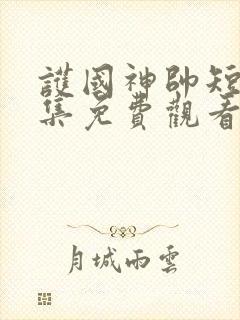 護國神帥短
集免費觀看
月城雨雲